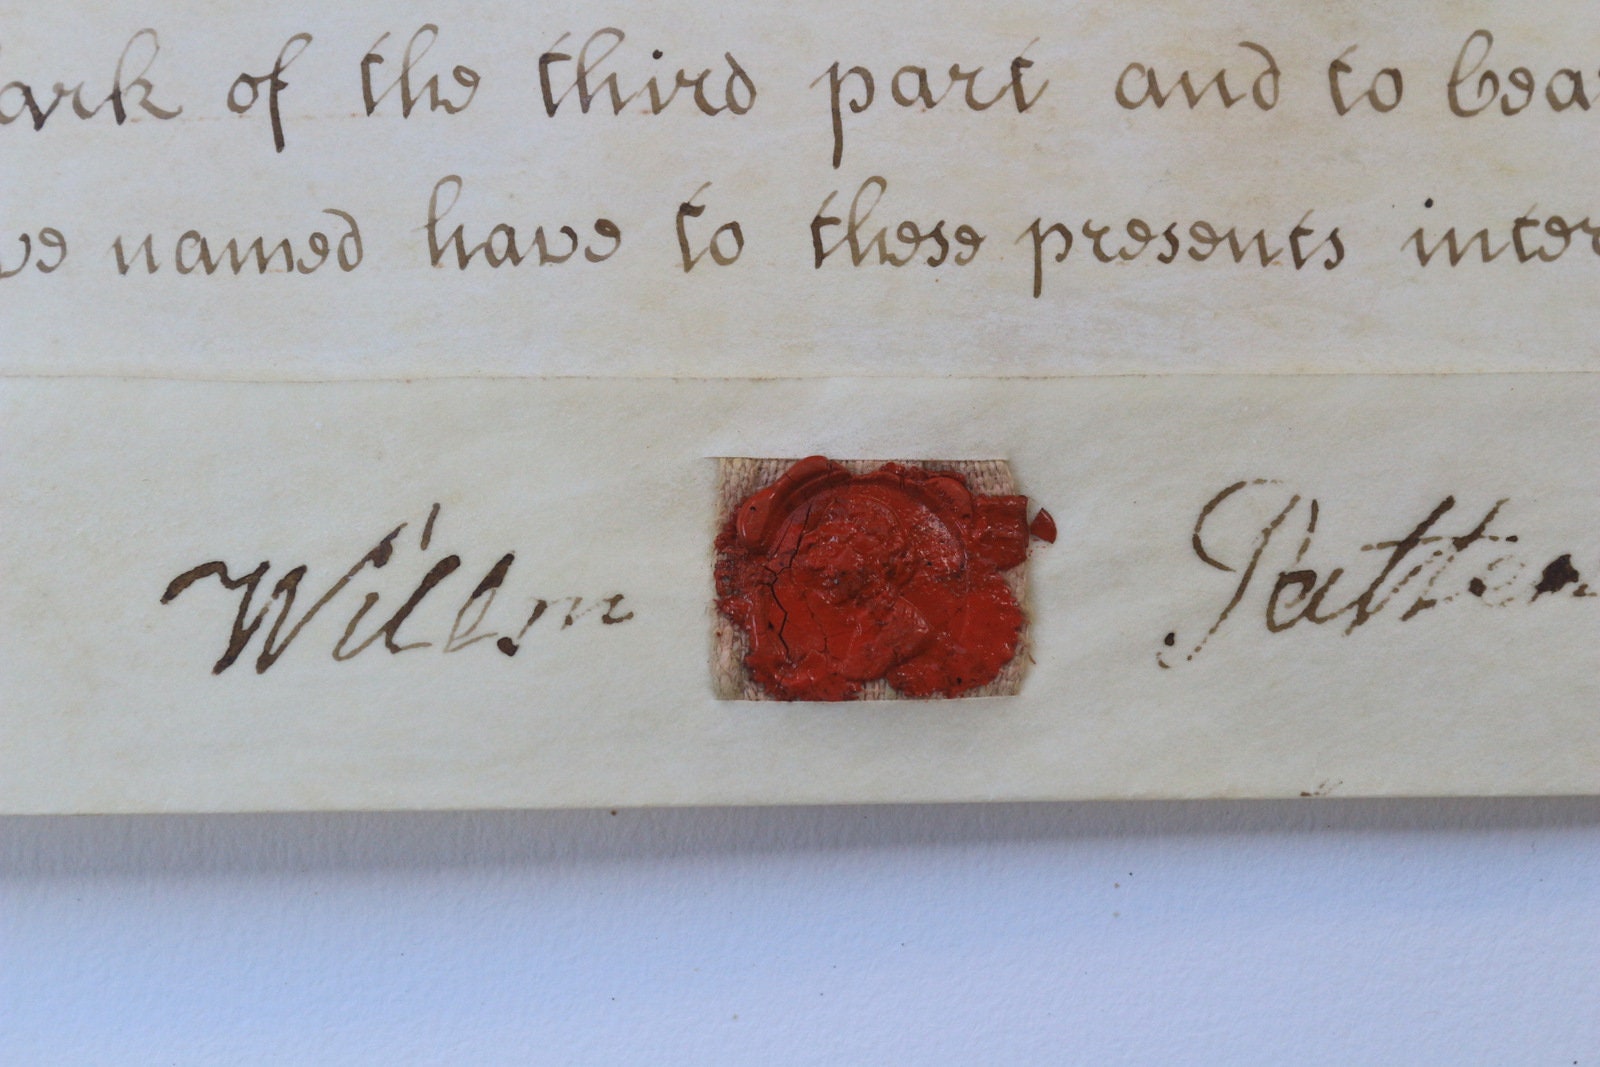 ark of the third part and to bear
ve named have to these presents inter
Willm Patten